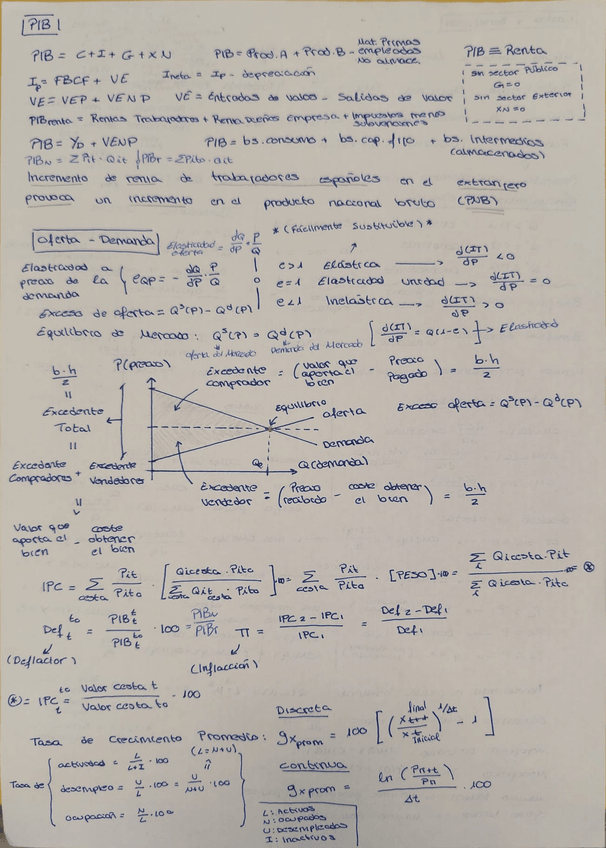 PIB
PIB = C+I+G+XN
PIB = Prod.A + Prod.B - Mat. Primas empleadas No almace.
PIB ≡ Renta
Ip = FBCF + VE
Ineta = Ip - depreciación
sin sector Público
G=0
sin sector Exterior
XN=0
VE = VEP + VENP
VE = Entradas de valos - Salidas de valor
PIBrenta = Rentas Trabajadores + Renta Dueños empresa + Impuestos menos subvenciones
PIB = YD + VENP
PIB = bs.consumo + bs. cap. fijo + bs. Intermedios (almacenados)
PIBN = ΣPit · Qit
PIBr = ΣPito · Qit
Incremento de renta de trabajadores españoles en el extranjero
provoca un incremento en el producto nacional bruto (PNB)
Oferta - Demanda
Elasticidad oferta = dQ/dP · P/Q
*(Fácilmente sustituible)*
Elasticidad a precio de la demanda
eQP = - dQ/dP · P/Q
e>1 Elástica → d(IT)/dP < 0
e=1 Elasticidad unidad → d(IT)/dP = 0
e<1 Inelástica → d(IT)/dP > 0
Exceso de oferta = Q^s(P) - Q^d(P)
Equilibrio de Mercado: Q^s(P) = Q^d(P)
oferta del Mercado
Demanda del Mercado
[d(IT)/dP = Q(1-e)] → Elasticidad
b·h/2
=
Excedente Total
=
Excedente Compradores + Excedente Vendedores
=
Valor que aporta el bien - coste obtener el bien
P(precio)
Excedente comprador = (Valor que aporta el bien - Precio Pagado) = b·h/2
Equilibrio
oferta
Exceso oferta = Q^s(P) - Q^d(P)
Demanda
Qe
Q(demanda)
Excedente Vendedor = (Precio recibido - coste obtener el bien) = b·h/2
IPC = Σcesta Pit/Pito · [Qicesta · Pito / Σcesta Qit cesta · Pito] ·100 = Σcesta Pit/Pito · [PESO]·100 = Σi Qicesta · Pit / Σi Qicesta · Pito ·100 ⊛
Def t to = PIB t N / PIB to t · 100 = PIBN/PIBr
π = IPC2 - IPC1 / IPC1 = Def2 - Def1 / Def1
(Deflactor)
(Inflacción)
⊛ = IPC t to = Valor cesta t / Valor cesta to · 100
Tasa de Crecimiento Promedio:
Discreta
gXprom = 100 [(X t+t final / X t inicial)^1/Δt - 1]
continua
gXprom = ln(Pn+t/Pn) / Δt · 100
Tasa de
actividad = L/L+I · 100
(L=N+U)
desempleo = U/L · 100 = U/N+U · 100
ocupación = N/L · 100
L: Activos
N: Ocupados
U: Desempleados
I: Inactivos